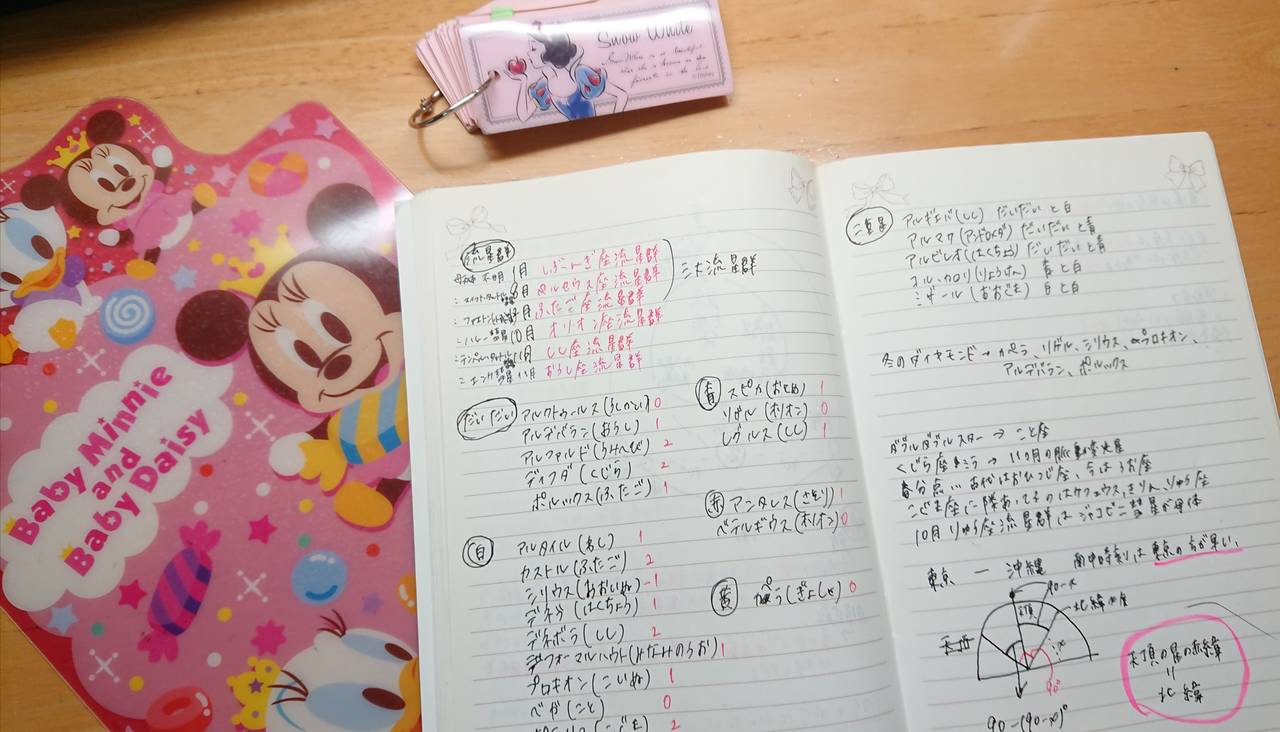 Baby Minnie
and
Baby Daisy
Snow White
流星群
母天体 不明 1月 しぶんぎ座流星群
月 ペルセウス座流星群
月 ふたご座流星群
〃 ハレー彗星 10月 オリオン座流星群
11月 しし座流星群
〃 エンケ彗星 11月 おうし座流星群
三大流星群
だいだい
アルクトゥールス(うしかい) 0
アルデバラン(おうし) 1
アルファルド(うみへび) 2
ディフダ(くじら) 2
ポルックス(ふたご) 1
白
アルタイル(わし) 1
カストル(ふたご) 2
シリウス(おおいぬ) -1
デネブ(はくちょう) 1
デネボラ(しし) 2
フォーマルハウト(みなみのうお) 1
プロキオン(こいぬ) 1
ベガ(こと) 0
(こぐま) 2
青
スピカ(おとめ) 1
リゲル(オリオン) 0
レグルス(しし) 1
赤
アンタレス(さそり) 1
ベテルギウス(オリオン) 0
黄
カペラ(ぎょしゃ) 0
二重星
アルギエバ(しし) だいだい と 白
アルマク(アンドロメダ) だいだい と 青
アルビレオ(はくちょう) だいだい と 青
コル・カロリ(りょうけん) 青 と 白
ミザール(おおぐま) 白 と 白
冬のダイヤモンド→カペラ、リゲル、シリウス、プロキオン、
アルデバラン、ポルックス
ダブルダブルスター → こと座
くじら座ミラ → 11ヶ月の脈動変光星
春分点… 古代はおひつじ座、今はうお座
こぐま座に隣あってるのはケフェウス、きりん、りゅう座
10月 りゅう座流星群はジャコビニ彗星が母体
東京 ー 沖縄 南中時刻は東京の方が早い、
90-x
天頂
北緯x度
天井
x
90°
90-(90-x)°
天頂の星の赤緯
〃
北緯